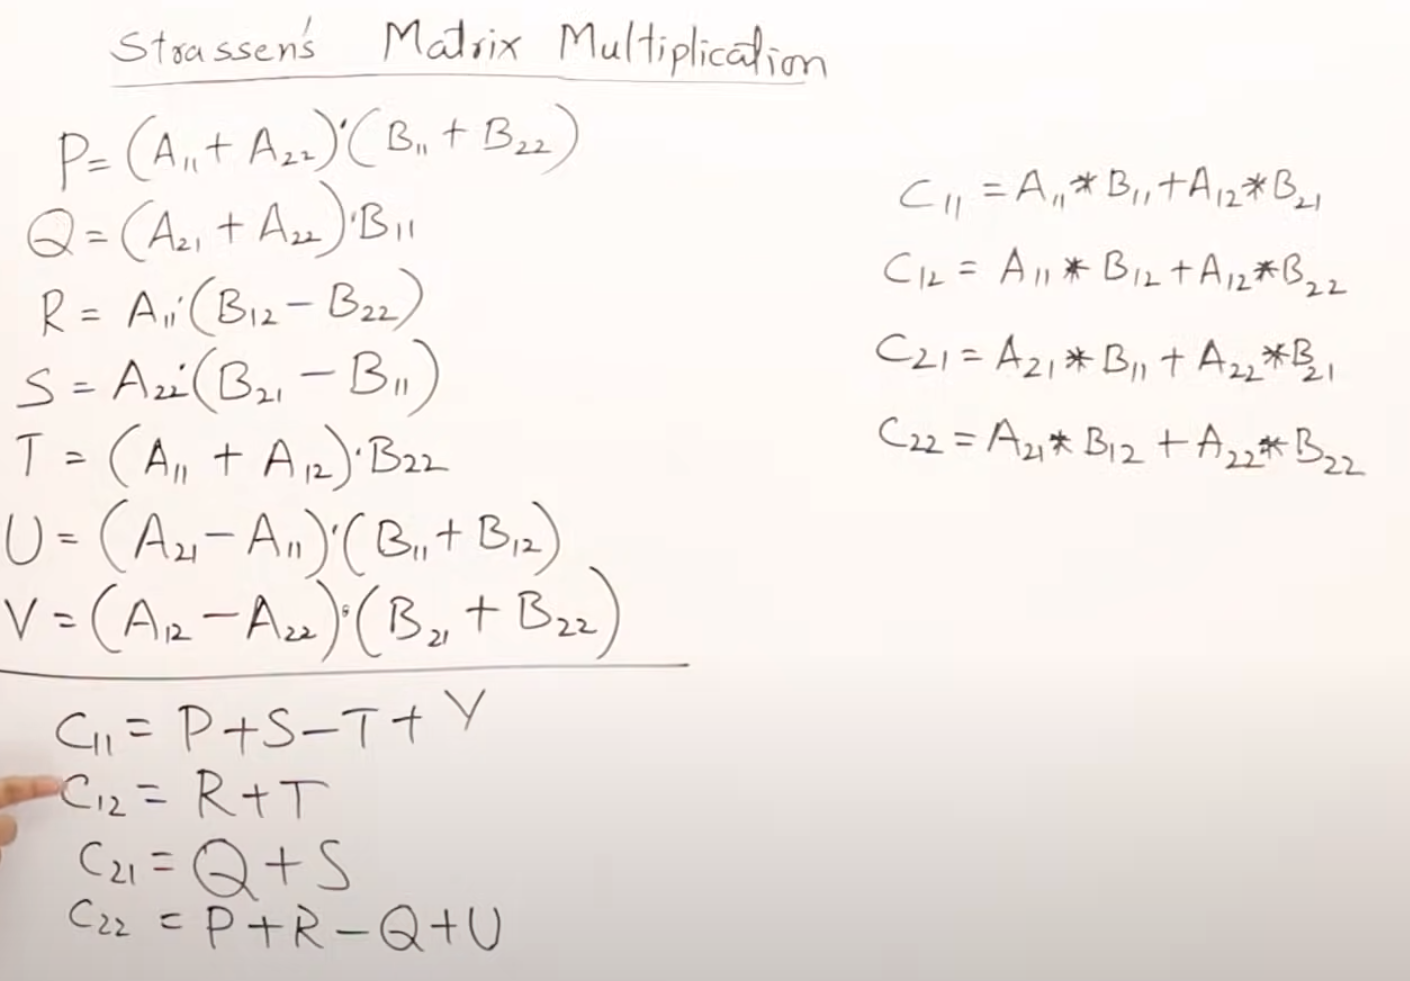 Strassen's Matrix Multiplication
P= (A₁₁+ A₂₂)·(B₁₁ + B₂₂)
Q = (A₂₁ + A₂₂)·B₁₁
R = A₁₁·(B₁₂ − B₂₂)
S = A₂₂·(B₂₁ − B₁₁)
T = (A₁₁ + A₁₂)·B₂₂
U = (A₂₁ − A₁₁)·(B₁₁ + B₁₂)
V = (A₁₂ − A₂₂)·(B₂₁ + B₂₂)
C₁₁ = P+S−T+V
C₁₂ = R+T
C₂₁ = Q+S
C₂₂ = P+R−Q+U
C₁₁ = A₁₁*B₁₁+A₁₂*B₂₁
C₁₂ = A₁₁*B₁₂+A₁₂*B₂₂
C₂₁ = A₂₁*B₁₁+A₂₂*B₂₁
C₂₂ = A₂₁*B₁₂+A₂₂*B₂₂